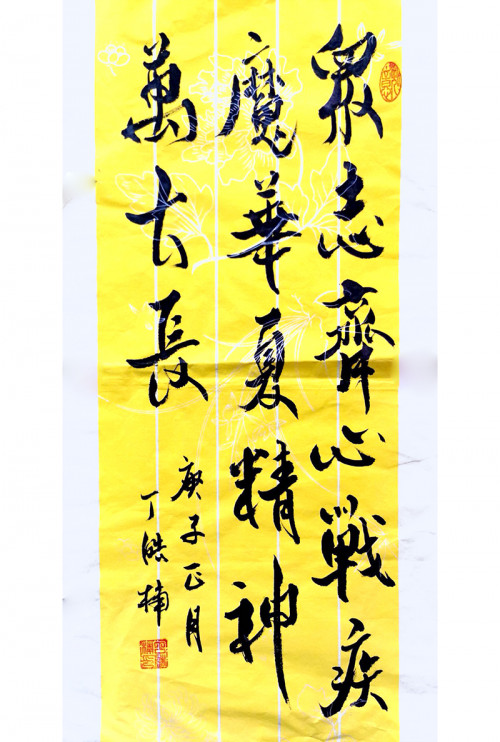 眾志齊心戰疾
魔華夏精神
萬古長
庚子正月
丁皓楠